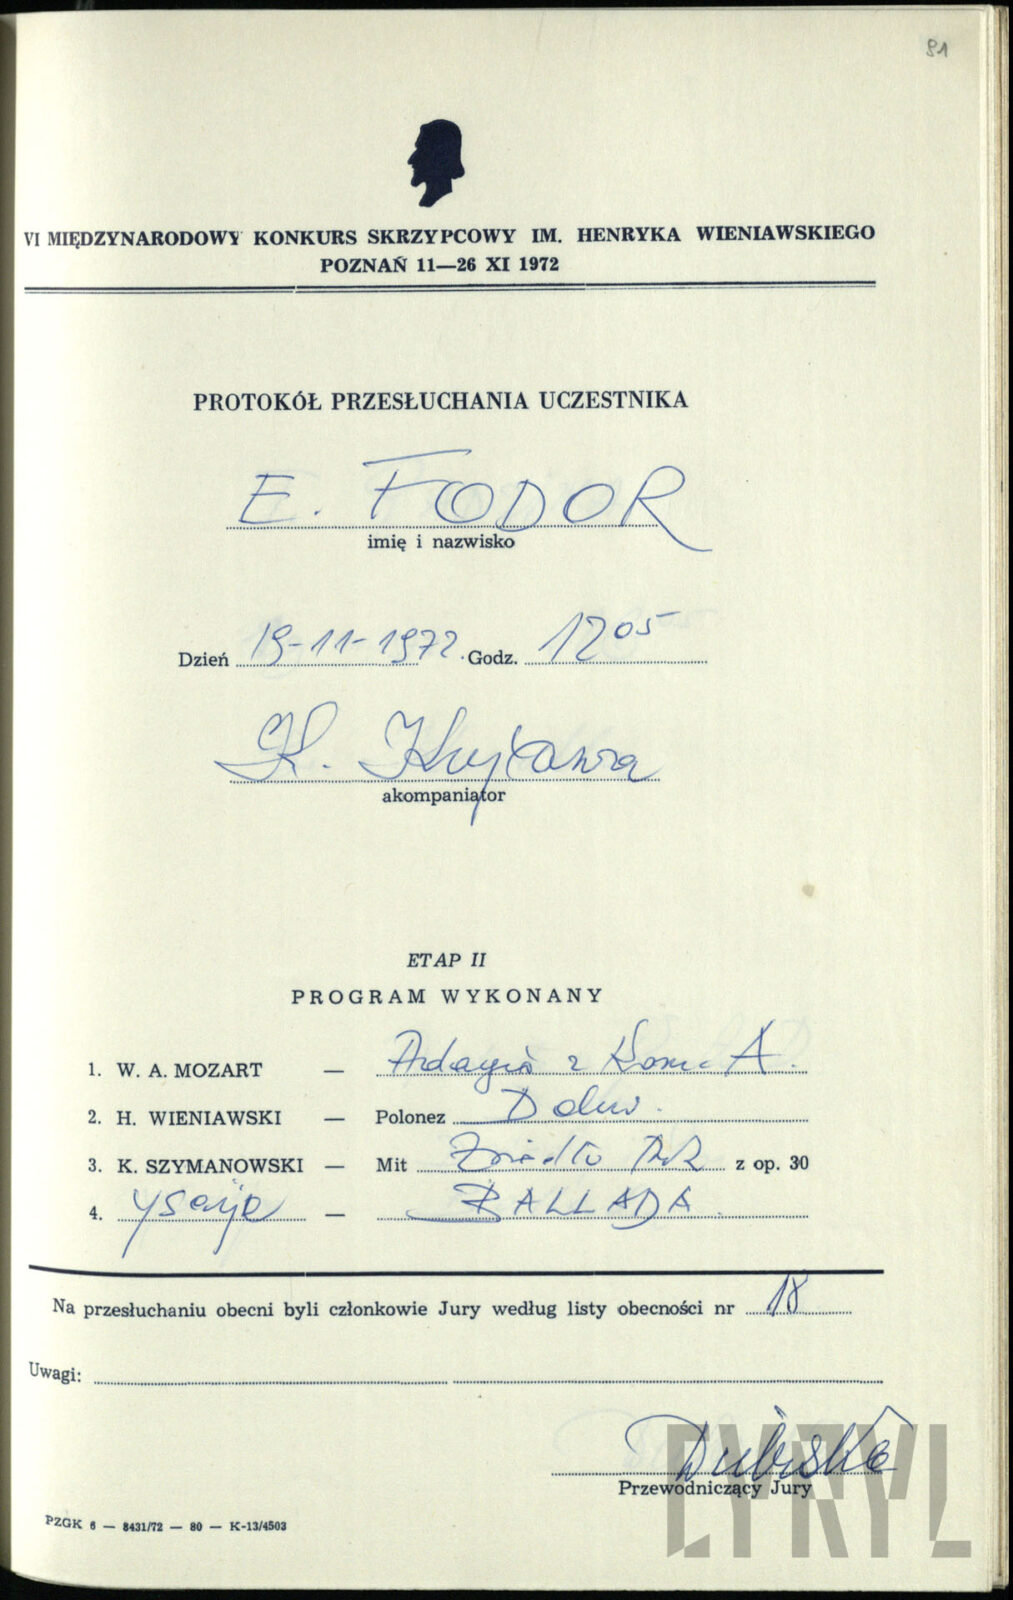 91
VI MIĘDZYNARODOWY KONKURS SKRZYPCOWY IM. HENRYKA WIENIAWSKIEGO
POZNAŃ 11—26 XI 1972
PROTOKÓŁ PRZESŁUCHANIA UCZESTNIKA
E. FODOR
imię i nazwisko
Dzień 19-11-1972. Godz. 12 05
K. Kujawa
akompaniator
ETAP II
PROGRAM WYKONANY
1. W. A. MOZART — Adagio z Konc. A.
2. H. WIENIAWSKI — Polonez D dur.
3. K. SZYMANOWSKI — Mit Źródło z op. 30
4. Ysaÿe — BALLADA.
Na przesłuchaniu obecni byli członkowie Jury według listy obecności nr 18
Uwagi:
Dubiska
Przewodniczący Jury
PZGK 6 — 8431/72 — 80 — K-13/4503
CYRYL